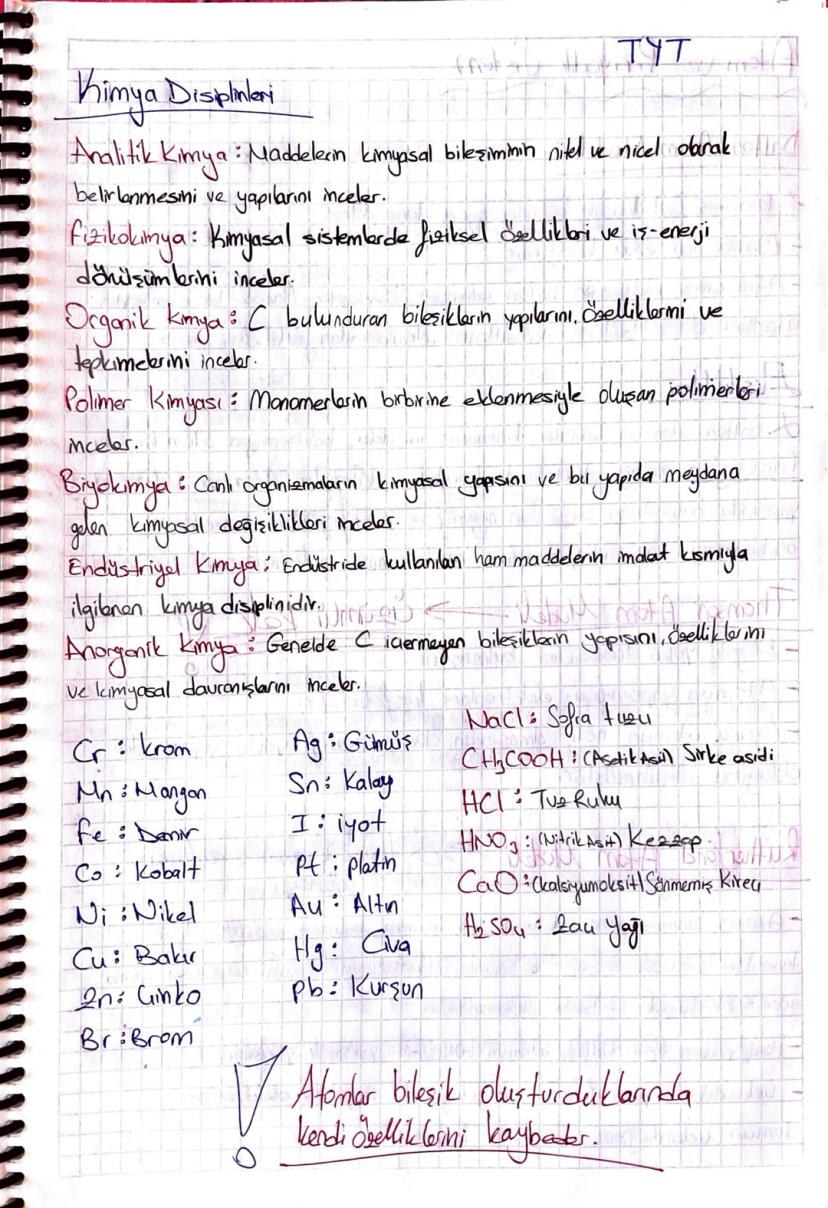 TYT
Kimya Disiplinleri
Analitik Kimya : Maddelerin kimyasal bileşiminin nitel ve nicel olarak
belirlenmesini ve yapılarını inceler.
Fizikokimya : Kimyasal sistemlerde fiziksel özellikleri ve iş-enerji
dönüşümlerini inceler.
Organik Kimya : C bulunduran bileşiklerin yapılarını, özelliklerini ve
tepkimelerini inceler.
Polimer Kimyası : Monomerlerin birbirine eklenmesiyle oluşan polimerleri
inceler.
Biyokimya : Canlı organizmaların kimyasal yapısını ve bu yapıda meydana
gelen kimyasal değişiklikleri inceler.
Endüstriyel Kimya : Endüstride kullanılan ham maddelerin imalat kısmıyla
ilgilenen kimya disiplinidir.
Anorganik Kimya : Genelde C içermeyen bileşiklerin yapısını, özelliklerini
ve kimyasal davranışlarını inceler.
Cr : krom
Mn : Mangan
Fe : Demir
Co : Kobalt
Ni : Nikel
Cu : Bakır
Zn : Çinko
Br : Brom
Ag : Gümüş
Sn : Kalay
I : iyot
Pt : platin
Au : Altın
Hg : Civa
Pb : Kurşun
NaCl : Sofra tuzu
CH3COOH : (Asetik Asit) Sirke asidi
HCl : Tuz Ruhu
HNO3 : (Nitrik Asit) Kezzap
CaO : (kalsiyumoksit) Sönmemiş Kireç
H2SO4 : Zaç Yağı
! Atomlar bileşik oluşturduklarında
kendi özelliklerini kaybeder.